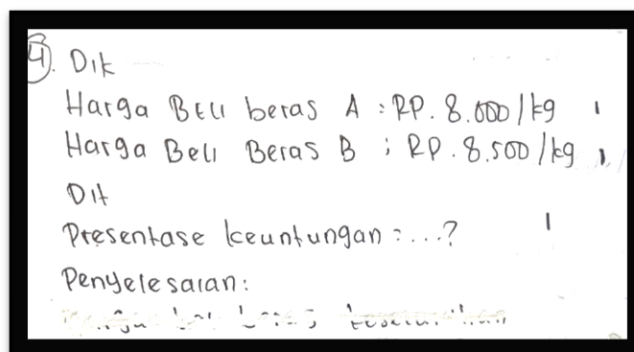 4. Dik
Harga Beli beras A : RP. 8.000/kg
Harga Beli Beras B : RP. 8.500/kg
Dit
Presentase keuntungan = ...?
Penyelesaian: